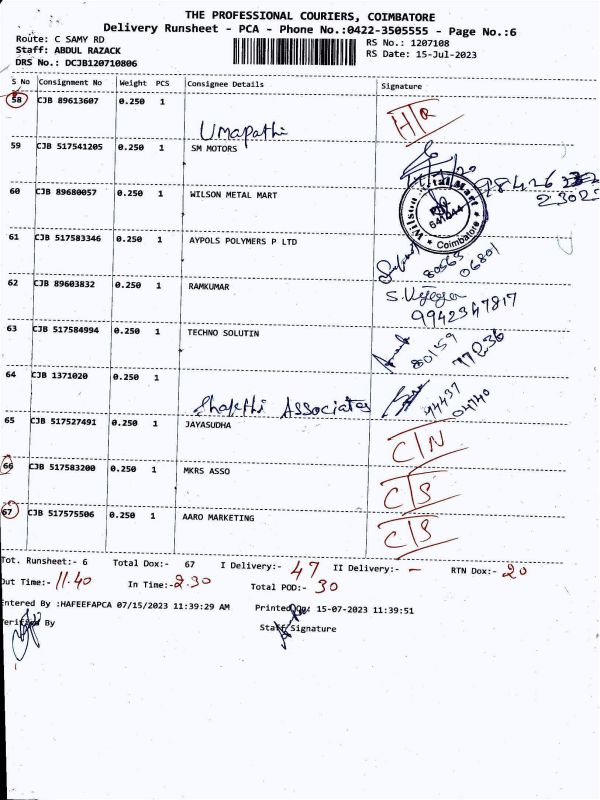 THE PROFESSIONAL COURIERS, COIMBATORE
Delivery Runsheet - PCA - Phone No.:0422-3505555 - Page No.:6
Route: C SAMY RD
RS No.: 1207108
Staff: ABDUL RAZACK
RS Date: 15-Jul-2023
DRS No.: DCJB120710806
S No Consignment No Weight PCS Consignee Details Signature
58 CJB 89613607 0.250 1 H/R
Umapathi
59 CJB 517541205 0.250 1 SM MOTORS
60 CJB 89680057 0.250 1 WILSON METAL MART
Wilson Metal Mart
Coimbatore
61 CJB 517583346 0.250 1 AYPOLS POLYMERS P LTD
80563
06801
62 CJB 89603832 0.250 1 RAMKUMAR
9942347817
63 CJB 517584994 0.250 1 TECHNO SOLUTIN
80159
77236
64 CJB 1371020 0.250 1
Shakthi Associates
94437
04740
65 CJB 517527491 0.250 1 JAYASUDHA C/N
66 CJB 517583200 0.250 1 MKRS ASSO C/S
67 CJB 517575506 0.250 1 AARO MARKETING C/S
Tot. Runsheet:- 6 Total Dox:- 67 I Delivery:- 47 II Delivery:- - RTN Dox:- 20
Out Time:- 11.40 In Time:- 2.30 Total POD:- 30
Entered By :HAFEEFAPCA 07/15/2023 11:39:29 AM Printed On: 15-07-2023 11:39:51
Verified By Staff Signature